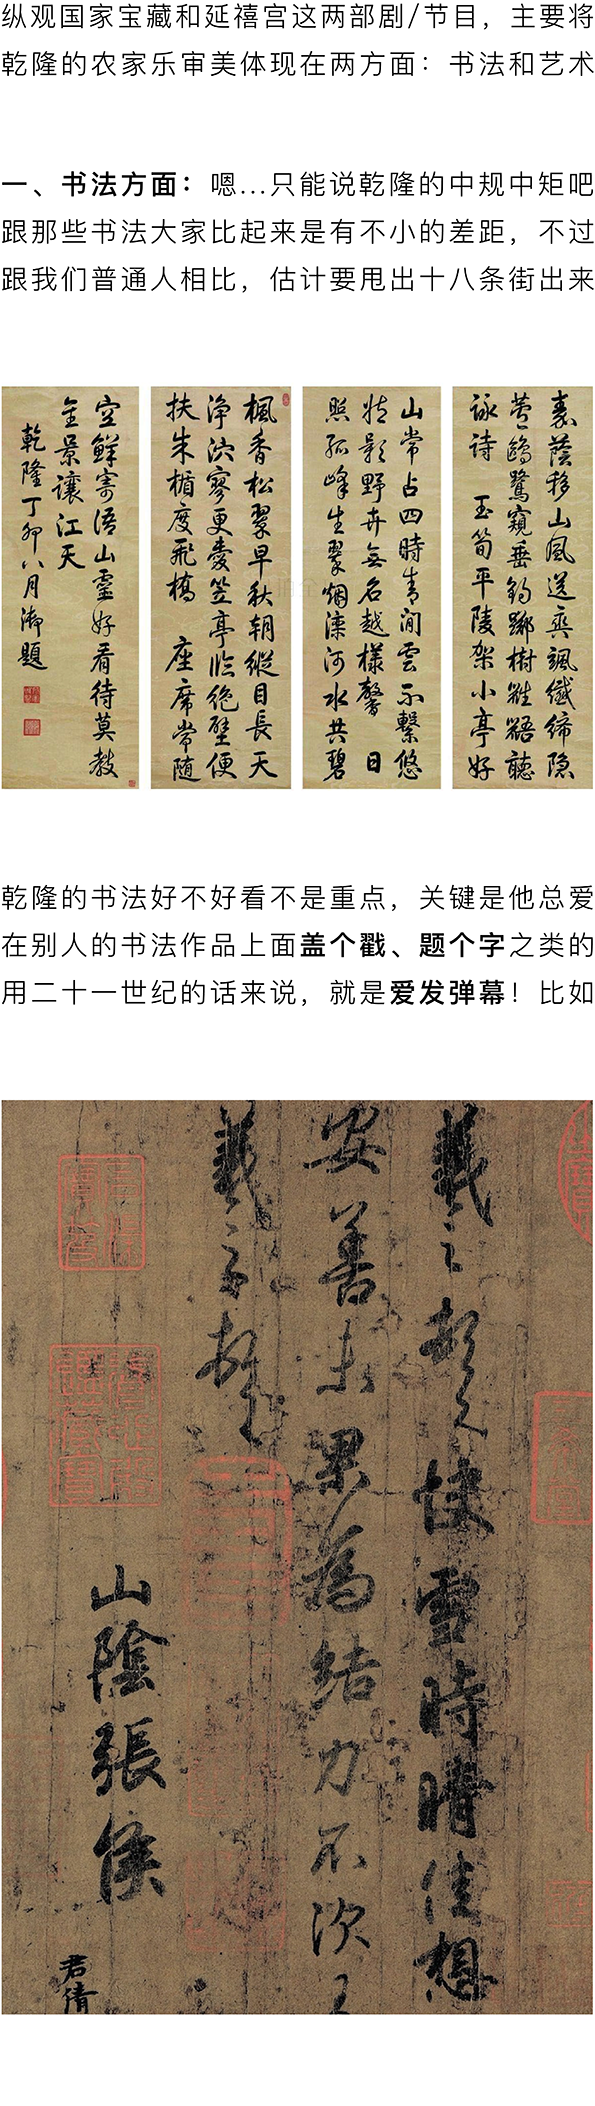 纵观国家宝藏和延禧宫这两部剧/节目，主要将
乾隆的农家乐审美体现在两方面：书法和艺术
一、书法方面：嗯...只能说乾隆的中规中矩吧
跟那些书法大家比起来是有不小的差距，不过
跟我们普通人相比，估计要甩出十八条街出来
裏蔭移山風送爽颯纖絺隐
鷗鷺窺垂釣鄰樹聽
詠詩 玉筍平陵架小亭好
山常占四時青澗雲不繫悠
悠影野卉無名越樣馨 日
照孤峰生翠烟灤河水共碧
楓香松翠早秋朝縱目長天
淨泬寥更愛笠亭臨絶壁便
扶朱楯度飛橋 座席常隨
空鮮寄語山靈好看待莫教
全景讓江天
乾隆丁卯八月御題
乾隆的书法好不好看不是重点，关键是他总爱
在别人的书法作品上面盖个戳、题个字之类的
用二十一世纪的话来说，就是爱发弹幕！比如
羲之頓首快雪時晴佳想
安善未果為結力不次王
羲之頓首
山陰張侯
君倩